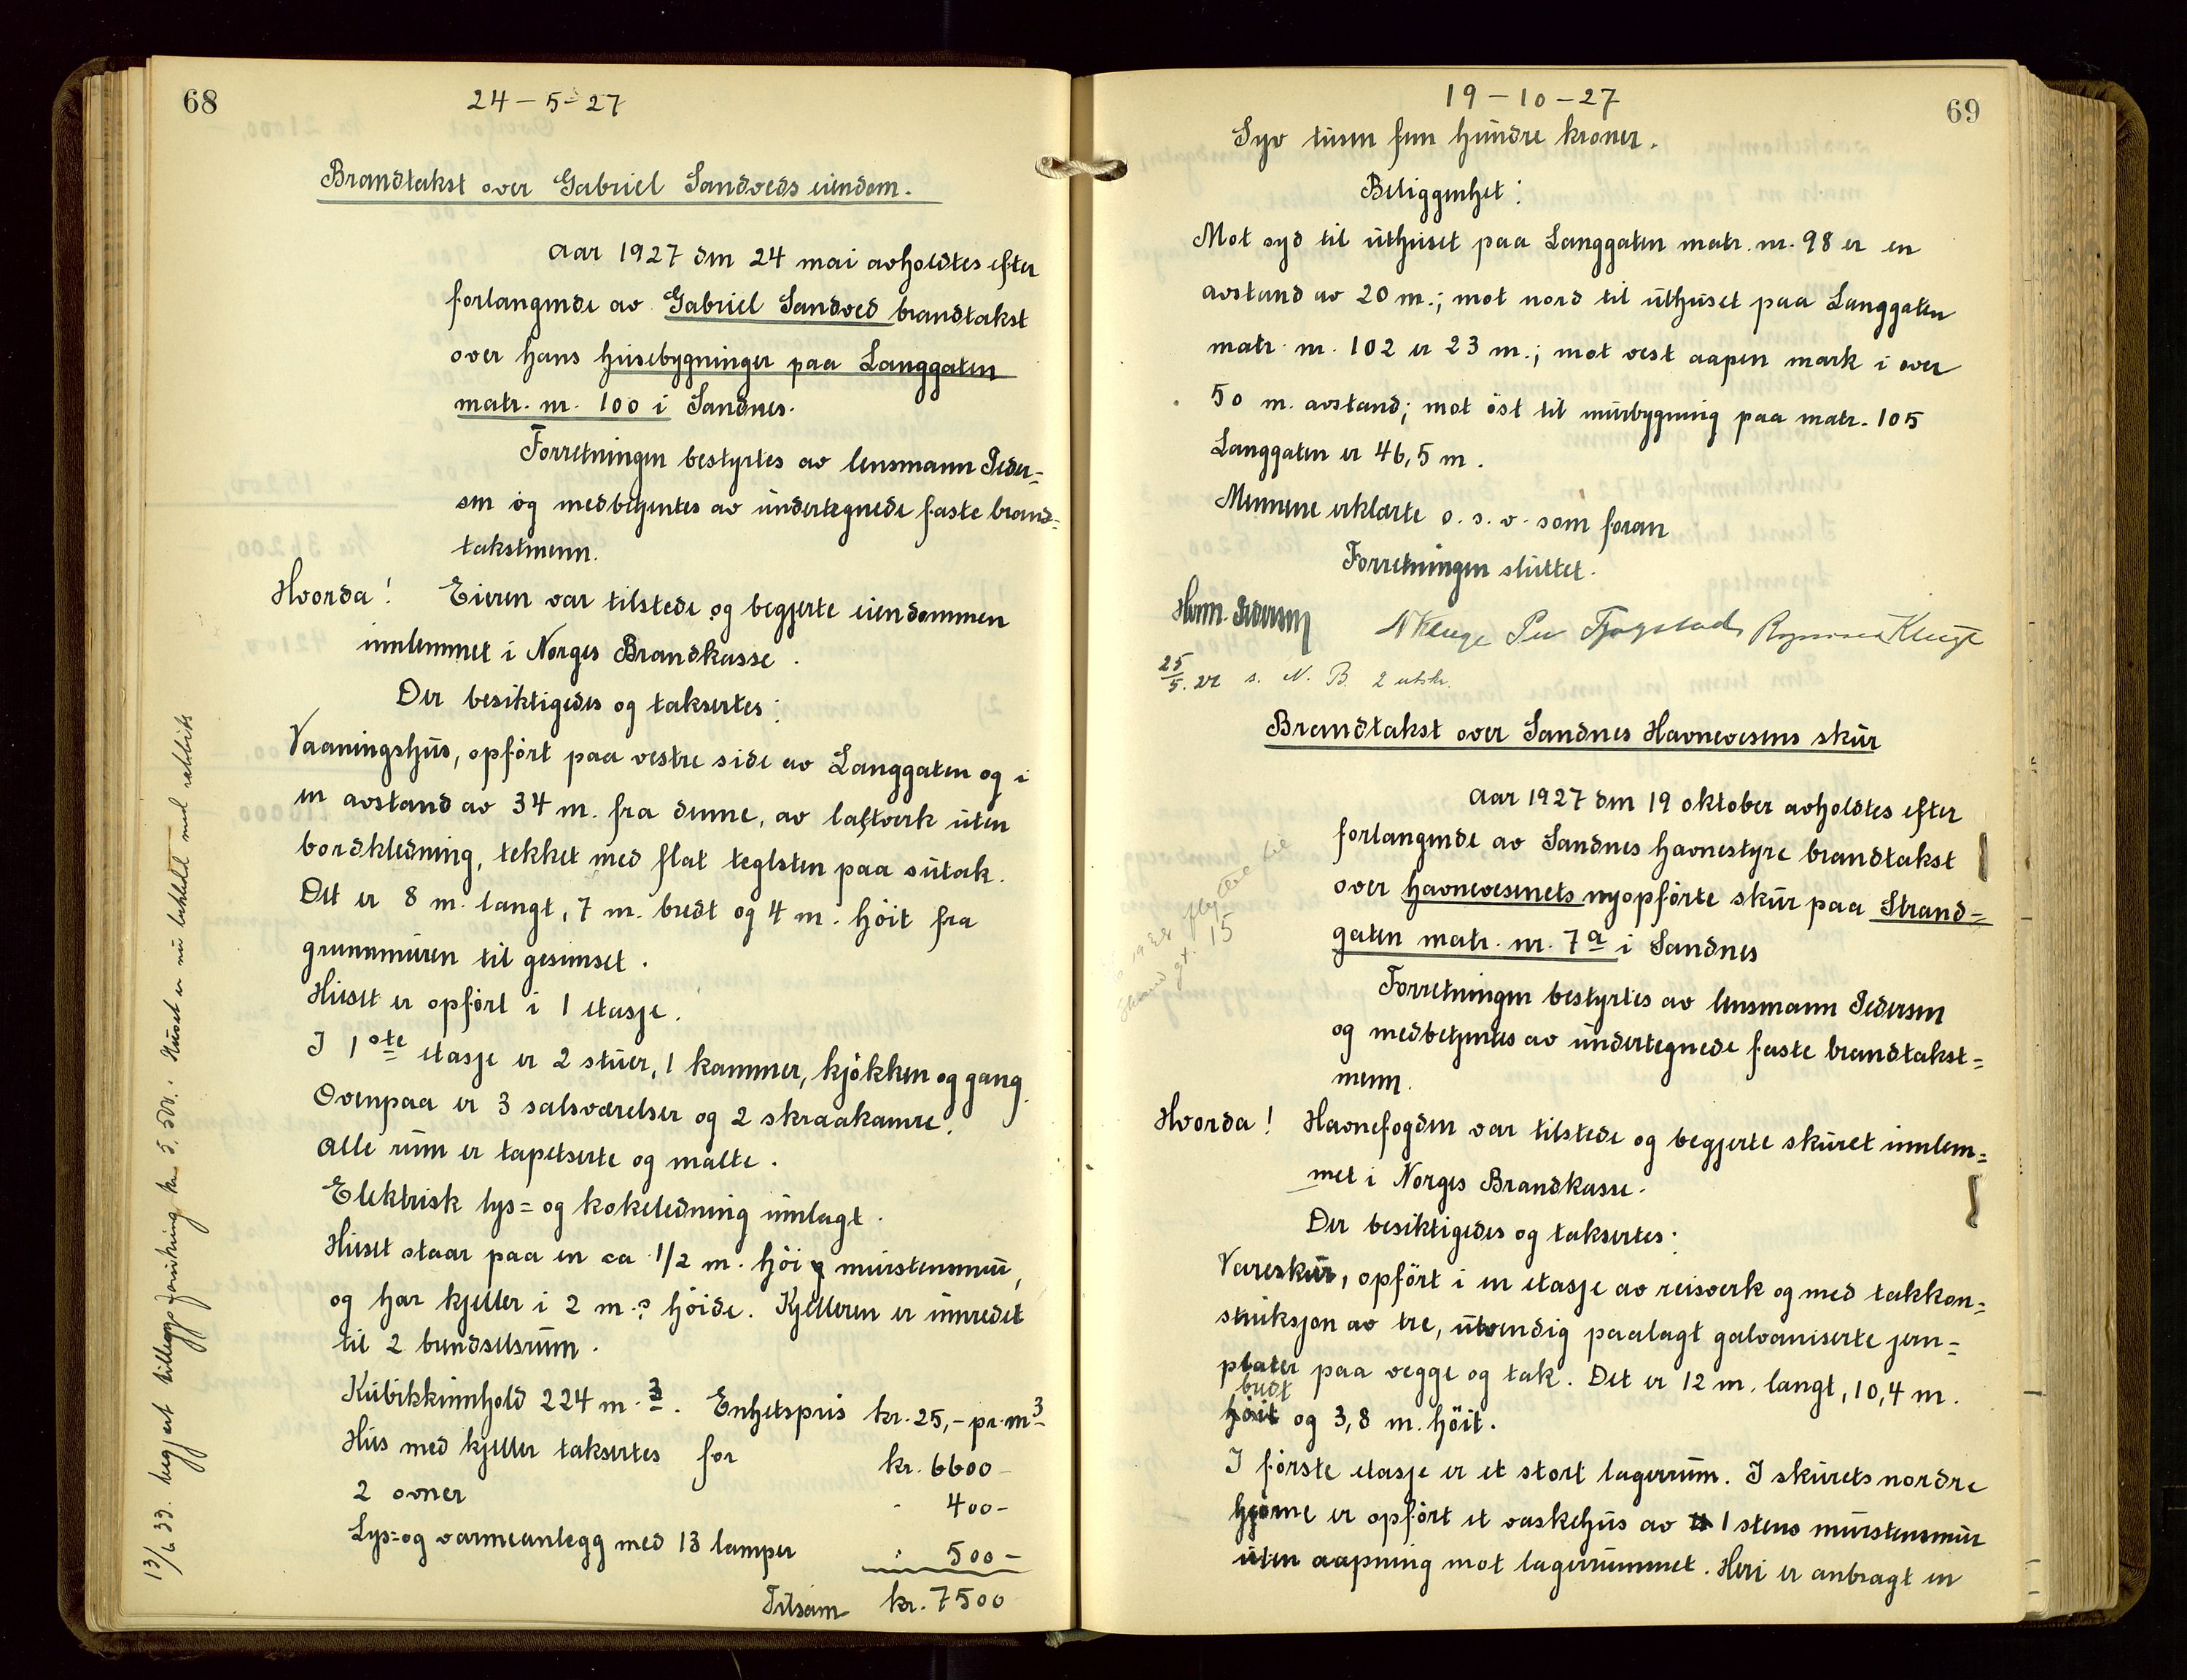 68
24-5-27
Brandtakst over Gabriel Sandveds eiendom.
Aar 1927 den 24 mai avholdtes efter
forlangende av Gabriel Sandved brandtakst
over hans husebygninger paa Langgaten
matr. nr. 100 i Sandnes.
Forretningen bestyrtes av lensmann Peder=
sen og medbetjentes av undertegnede faste brand=
takstmenn.
Hvorda! Eieren var tilstede og begjerte eiendommen
innlemmet i Norges Brandkasse.
Der besiktigedes og taksertes:
Vaaningshus, opført paa vestre side av Langgaten og i
en avstand av 34 m. fra denne, av laftverk uten
bordkledning, tekket med flat teglsten paa sutak.
Det er 8 m. langt, 7 m. bredt og 4 m. høit fra
grunnmuren til gesimset.
Huset er opført i 1 etasje.
I 1ste etasje er 2 stuer, 1 kammer, kjøkken og gang.
Ovenpaa er 3 salsværelser og 2 skraakamre.
Alle rum er tapetserte og malte.
Elektrisk lys= og kokeledning innlagt.
Huset staar paa en ca 1/2 m. høi murstensmur,
og har kjeller i 2 m.s høide. Kjelleren er innredet
til 2 brendselsrum.
Kubikkinnhold 224 m.3. Enhetspris kr. 25,- pr. m3
Hus med kjeller taksertes for kr. 6600-
2 ovner - 400-
Lys= og varmeanlegg med 13 lamper - 500-
Tilsam kr. 7500
13/6 33. begjert tilleggsforsikring kr. 5.500. Huset er nu bekledt med
69
19-10-27
Syv tusen fem hundre kroner.
Beliggenhet:
Mot syd til uthuset paa Langgaten matr. nr. 98 er en
avstand av 20 m.; mot nord til uthuset paa Langgaten
matr. nr. 102 er 23 m.; mot vest aapen mark i over
50 m. avstand; mot øst til murbygning paa matr. 105
Langgaten er 46,5 m.
Mennene erklærte o. s. v. som foran
Forretningen sluttet.
Herm. Pedersen N Kluge Per Tjøgstad Kluge
25/5. 27 s. N. B. 2 utskr.
Brandtakst over Sandnes Havnevesens skur
Aar 1927 den 19 oktober avholdtes efter
forlangende av Sandnes havnestyre brandtakst
over havnevesenets nyopførte skur paa Strand=
gaten matr. nr. 7a i Sandnes
flyttet til
Strand gt. 15
Forretningen bestyrtes av lensmann Pedersen
og medbetjentes av undertegnede faste brandtakst=
menn.
Hvorda! Havnefogden var tilstede og begjerte skuret innlem=
met i Norges Brandkasse.
Der besiktigedes og taksertes:
Vareskur, opført i en etasje av reisverk og med takkon=
struksjon av tre, utvendig paalagt galvaniserte jern=
plater paa vegge og tak. Det er 12 m. langt, 10,4 m.
bredt
høit og 3,8 m. høit.
I første etasje er et stort lagerrum. I skurets nordre
hjørne er opført et vaskehus av 1 stens murstensmur
uten aapning mot lagerrummet. Heri er anbragt en